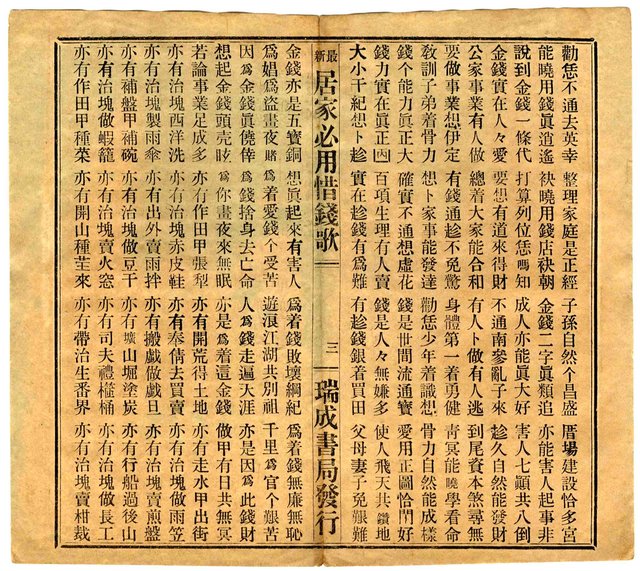 勸恁不通去英幸 整理家庭是正經 子孫自然个昌盛 厝場建設恰多宮
能曉用錢眞逍遙 袂曉用錢店袂朝 金錢二字眞類追 亦能害人起事非
說到金錢一條代 打算列位恁嗎知 成人亦能眞大好 害人七顚共八倒
金錢實在人々愛 要想有道來得財 不通南參亂子來 趁久自然能發財
公家事業有人做 總着大家能合和 有人卜做有人逃 到尾資本煞尋無
要做事業想伊定 有錢通趁不免驚 身體第一着勇健 靑冥能曉學看命
敎訓子弟着骨力 想卜家事能發達 勸恁少年着識想 骨力自然能成樣
錢个能力眞正大 確實不通想虛花 錢是世間流通寶 愛用正圖恰鬥好
錢力實在眞正凶 百項生理有人賣 錢是人々無嫌多 使人飛天共鑽地
大小干紀想卜趁 實在趁錢有爲難 有趁錢銀着買田 父母妻子免艱難
最新居家必用惜錢歌 三 瑞成書局發行
金錢亦是五寶銅 想眞起來有害人 爲着錢敗壞綱紀 爲着錢無廉無恥
爲娼爲盜晝夜賭 爲着愛錢个受苦 遊浪江湖共別祖 千里爲官个艱苦
因爲金錢眞僥倖 爲錢捨身去亡命 人爲錢走遍天涯 亦是因爲此錢財
想起金錢頭壳眩 爲你晝夜來無眠 亦是爲着這金錢 做甲有日共無冥
若論事業足成多 亦有作田甲張犁 亦有開荒得土地 亦有走水甲出街
亦有治塊西洋洗 亦有治塊亦皮鞋 亦有奉倩去買賣 亦有治塊做雨笠
亦有治塊製雨傘 亦有出外賣雨拌 亦有搬戱做戱旦 亦有治塊賣煎盤
亦有補盤甲補碗 亦有治塊做豆干 亦有山堀塗炭 亦有行船過後山
亦有治塊做蝦籠 亦有治塊賣火窓 亦有司夫禮桶 亦有治塊做長工
亦有作田甲種菜 亦有開山種來 亦有帶治生番界 亦有治塊賣柑栽